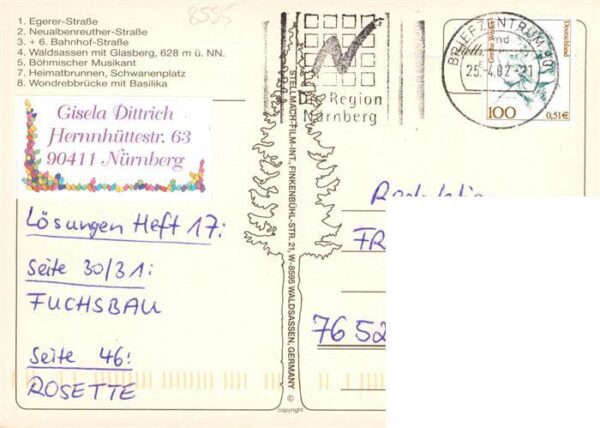 8595
1. Egerer-Straße
2. Neualbenreuther-Straße
3. + 6. Bahnhof-Straße
4. Waldsassen mit Glasberg, 628 m ü. NN.
5. Böhmischer Musikant
7. Heimatbrunnen, Schwanenplatz
8. Wondrebbrücke mit Basilika
Gisela Dittrich
Hernnhüttestr. 63
90411 Nürnberg
Lösungen Heft 17:
Seite 30/31:
FUCHSBAU
Seite 46:
ROSETTE
STELLMACH-FILM-INT., FINKENBÜHL-STR. 21, W-8595 WALDSASSEN, GERMANY
©
copyright
Die Region
Nürnberg
BRIEFZENTRUM 90
25.-4.02-21
Deutschland
100
0,51€
FR
7652